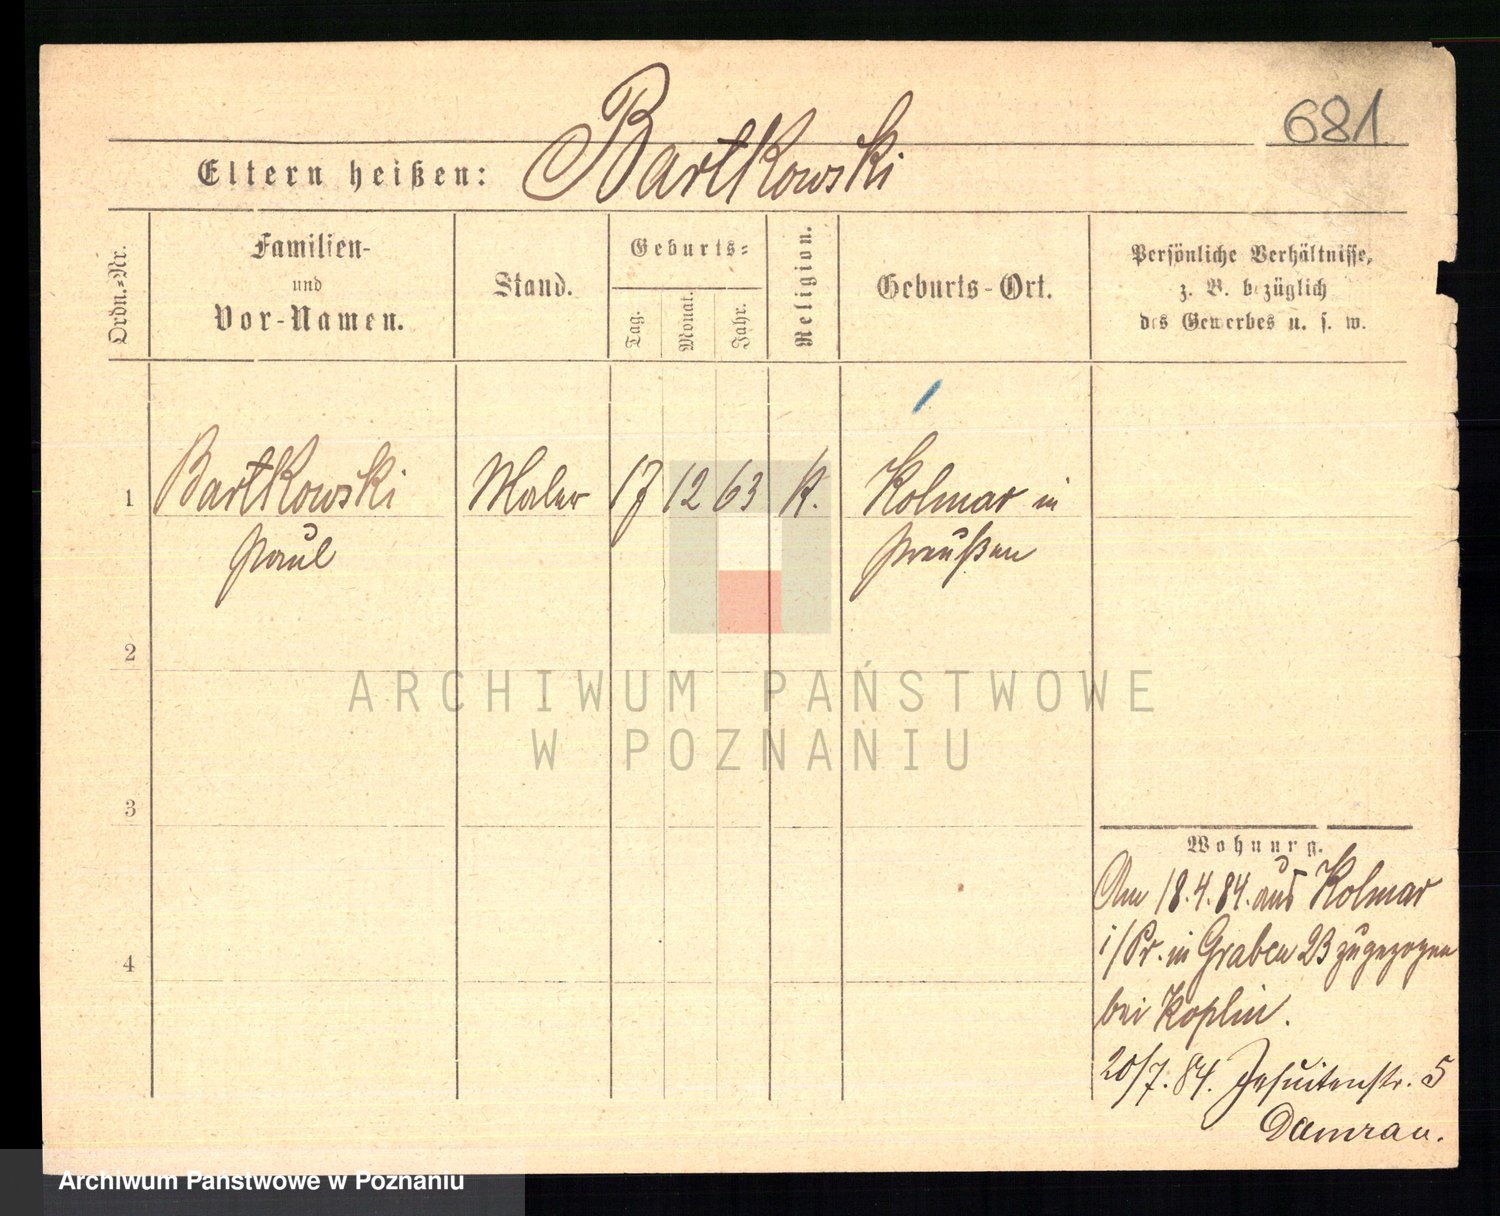 681
Eltern heißen: Bartkowski
Ordn.-Nr.
Familien-
und
Vor-Namen.
Stand.
Geburts-
Tag.
Monat.
Jahr.
Religion.
Geburts-Ort.
Persönliche Verhältnisse,
z. B. bezüglich
des Gewerbes u. s. w.
1 Bartkowski Maler 17 12 63 K. Kolmar in
Paul Preußen
2
3
4
ARCHIWUM PAŃSTWOWE
W POZNANIU
Wohnung.
Am 18.4.84. aus Kolmar
i/Pr. in Graben 23 zugezogen
bei Koplin.
20/7. 84. Jesuitenstr. 5
Damrau.
Archiwum Państwowe w Poznaniu